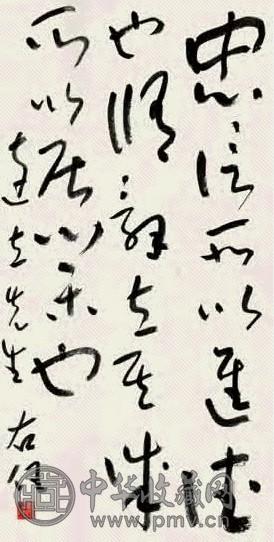 忠信所以進德
也脩辭立其誠
所以居業也
達立先生 右任
中华收藏网
www.jpmv.cn